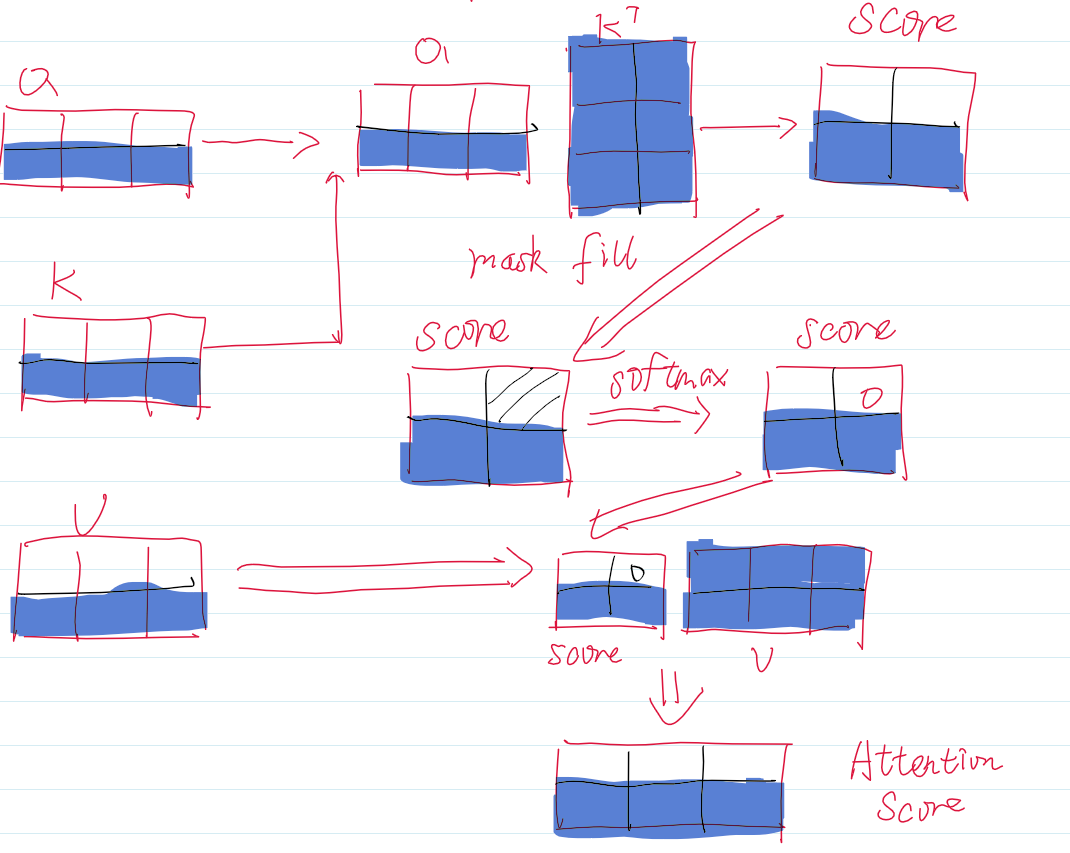 Q
Q
K^T
score
K
mask fill
score
softmax
score
0
V
0
score
V
Attention
score